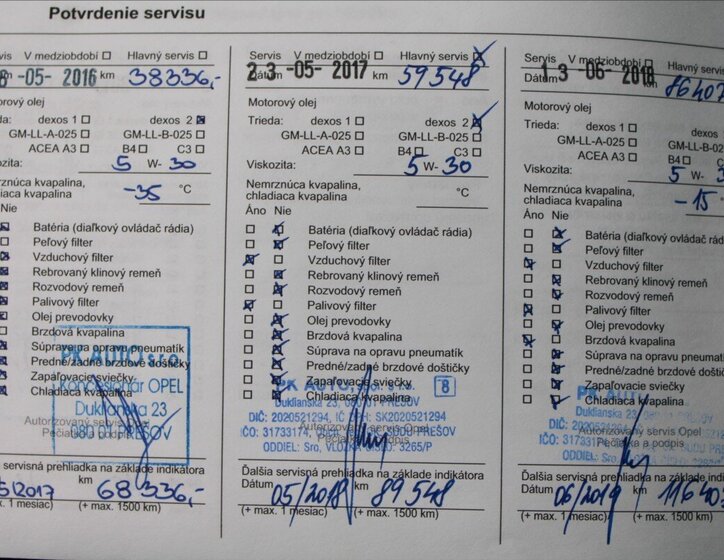 Potvrdenie servisu
vis V medziobdobí Hlavný servis
8 -05- 2016 km 38336,-
orový olej
dexos 1 dexos 2
GM-LL-A-025 GM-LL-B-025
ACEA A3 B4 C3
ozita: 5 W- 30
rznúca kvapalina,
iaca kvapalina -35 °C
Nie
Batéria (diaľkový ovládač rádia)
Peľový filter
Vzduchový filter
Rebrovaný klinový remeň
Rozvodový remeň
Palivový filter
Olej prevodovky
Brzdová kvapalina
Súprava na opravu pneumatík
Predné/zadné brzdové doštičky
Zapaľovacie sviečky
Chladiaca kvapalina
PK AUTO s.r.o.
Koncesionár OPEL
Duklianska 23
080 01 PREŠOV
Autorizovaný servis Opel
Pečiatka a podpis
servisná prehliadka na základe indikátora
5/2017 km 68336,-
max. 1 mesiac) (+ max. 1500 km)
Servis V medziobdobí Hlavný servis
Dátum 23 -05- 2017 km 59548
Motorový olej
Trieda: dexos 1 dexos 2
GM-LL-A-025 GM-LL-B-025
ACEA A3 B4 C3
Viskozita: 5 W- 30
Nemrznúca kvapalina,
chladiaca kvapalina °C
Áno Nie
Batéria (diaľkový ovládač rádia)
Peľový filter
Vzduchový filter
Rebrovaný klinový remeň
Rozvodový remeň
Palivový filter
Olej prevodovky
Brzdová kvapalina
Súprava na opravu pneumatík
Predné/zadné brzdové doštičky
Zapaľovacie sviečky
Chladiaca kvapalina
PK AUTO, spol. s r.o. 8
Duklianska 23, 080 01 PREŠOV
DIČ: 2020521294, IČ DPH: SK2020521294
IČO: 31733174, OR OKR. SÚDU PREŠOV
ODDIEL: Sro, VLOŽKA ČÍSLO: 3265/P
Autorizovaný servis Opel
Pečiatka a podpis
Ďalšia servisná prehliadka na základe indikátora
Dátum 05/2018 km 89548
(+ max. 1 mesiac) (+ max. 1500 km)
Servis V medziobdobí Hlavný servis
Dátum 13 -06- 2018 km 86402
Motorový olej
Trieda: dexos 1
GM-LL-A-025 GM-LL-B
ACEA A3 B4
Viskozita: 5 W-
Nemrznúca kvapalina,
chladiaca kvapalina -15
Áno Nie
Batéria (diaľkový ovládač rádia)
Peľový filter
Vzduchový filter
Rebrovaný klinový remeň
Rozvodový remeň
Palivový filter
Olej prevodovky
Brzdová kvapalina
Súprava na opravu pneumatí
Predné/zadné brzdové došti
Zapaľovacie sviečky
Chladiaca kvapalina
Duklianska 23,
Autorizovaný servis Opel
Pečiatka a podpis
ODDIEL: Sro,
Ďalšia servisná prehliadka na základe indi
Dátum 06/2019 km 116402
(+ max. 1 mesiac) (+ max. 1500 km)